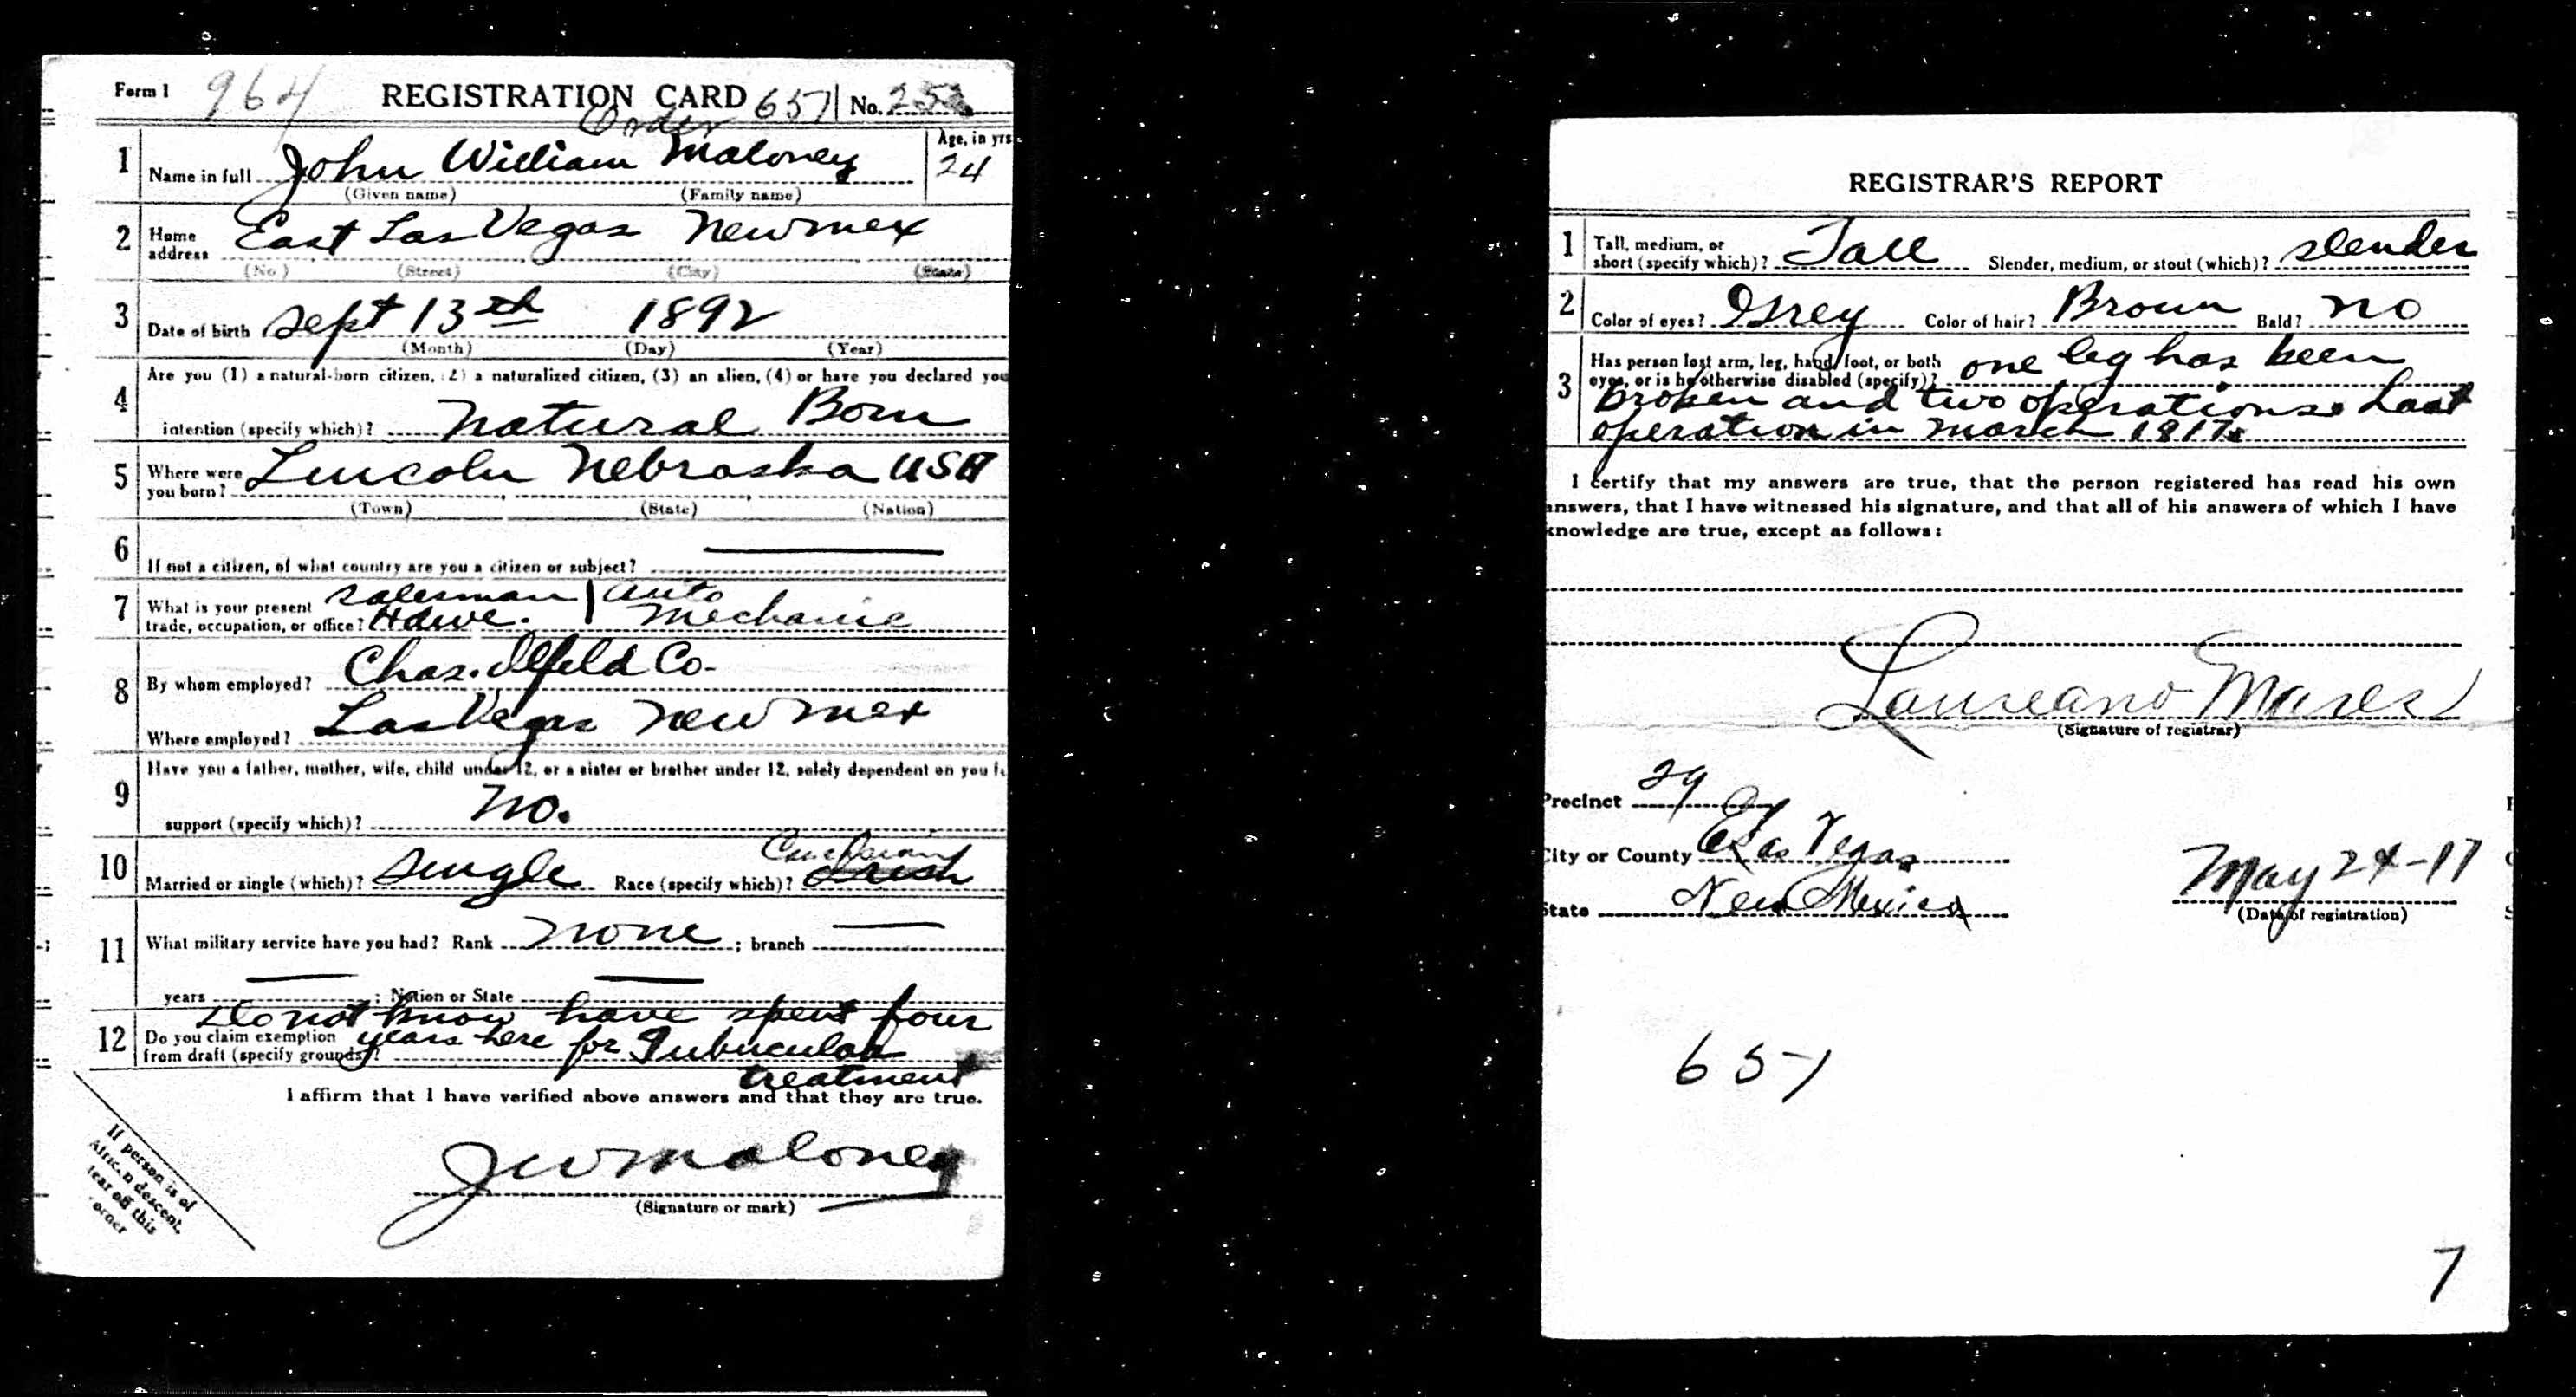 Form 1 964 REGISTRATION CARD 657 No. 252
Order
1 Name in full John William Maloney Age, in yrs 24
(Given name) (Family name)
2 Home address East Las Vegas New mex
(No.) (Street) (City) (State)
3 Date of birth Sept 13th 1892
(Month) (Day) (Year)
4 Are you (1) a natural-born citizen, (2) a naturalized citizen, (3) an alien, (4) or have you declared you
intention (specify which)? Natural Born
5 Where were you born? Lincoln Nebraska USA
(Town) (State) (Nation)
6 If not a citizen, of what country are you a citizen or subject?
7 What is your present trade, occupation, or office? Salesman Hdwe. | Auto Mechanic
8 By whom employed? Chas. Ilfeld Co.
Where employed? Las Vegas New Mex
9 Have you a father, mother, wife, child under 12, or a sister or brother under 12, solely dependent on you f
support (specify which)? No.
10 Married or single (which)? Single Race (specify which)? Irish Caucasian
11 What military service have you had? Rank None ; branch
years ; Nation or State
12 Do you claim exemption from draft (specify grounds)? Do not know have spent four
years here for Tubucular
treatment
I affirm that I have verified above answers and that they are true.
J W Maloney
(Signature or mark)
If person is of
African descent,
tear off this
corner
REGISTRAR'S REPORT
1 Tall, medium, or short (specify which)? Tall Slender, medium, or stout (which)? Slender
2 Color of eyes? Grey Color of hair? Brown Bald? No
3 Has person lost arm, leg, hand, foot, or both eyes, or is he otherwise disabled (specify)? one leg has been
broken and two operations. Last
operation in March 1917.
I certify that my answers are true, that the person registered has read his own
answers, that I have witnessed his signature, and that all of his answers of which I have
knowledge are true, except as follows:
Laureano Mares
(Signature of registrar)
Precinct 29
City or County E Las Vegas
State New Mexico
May 24-17
(Date of registration)
657
7